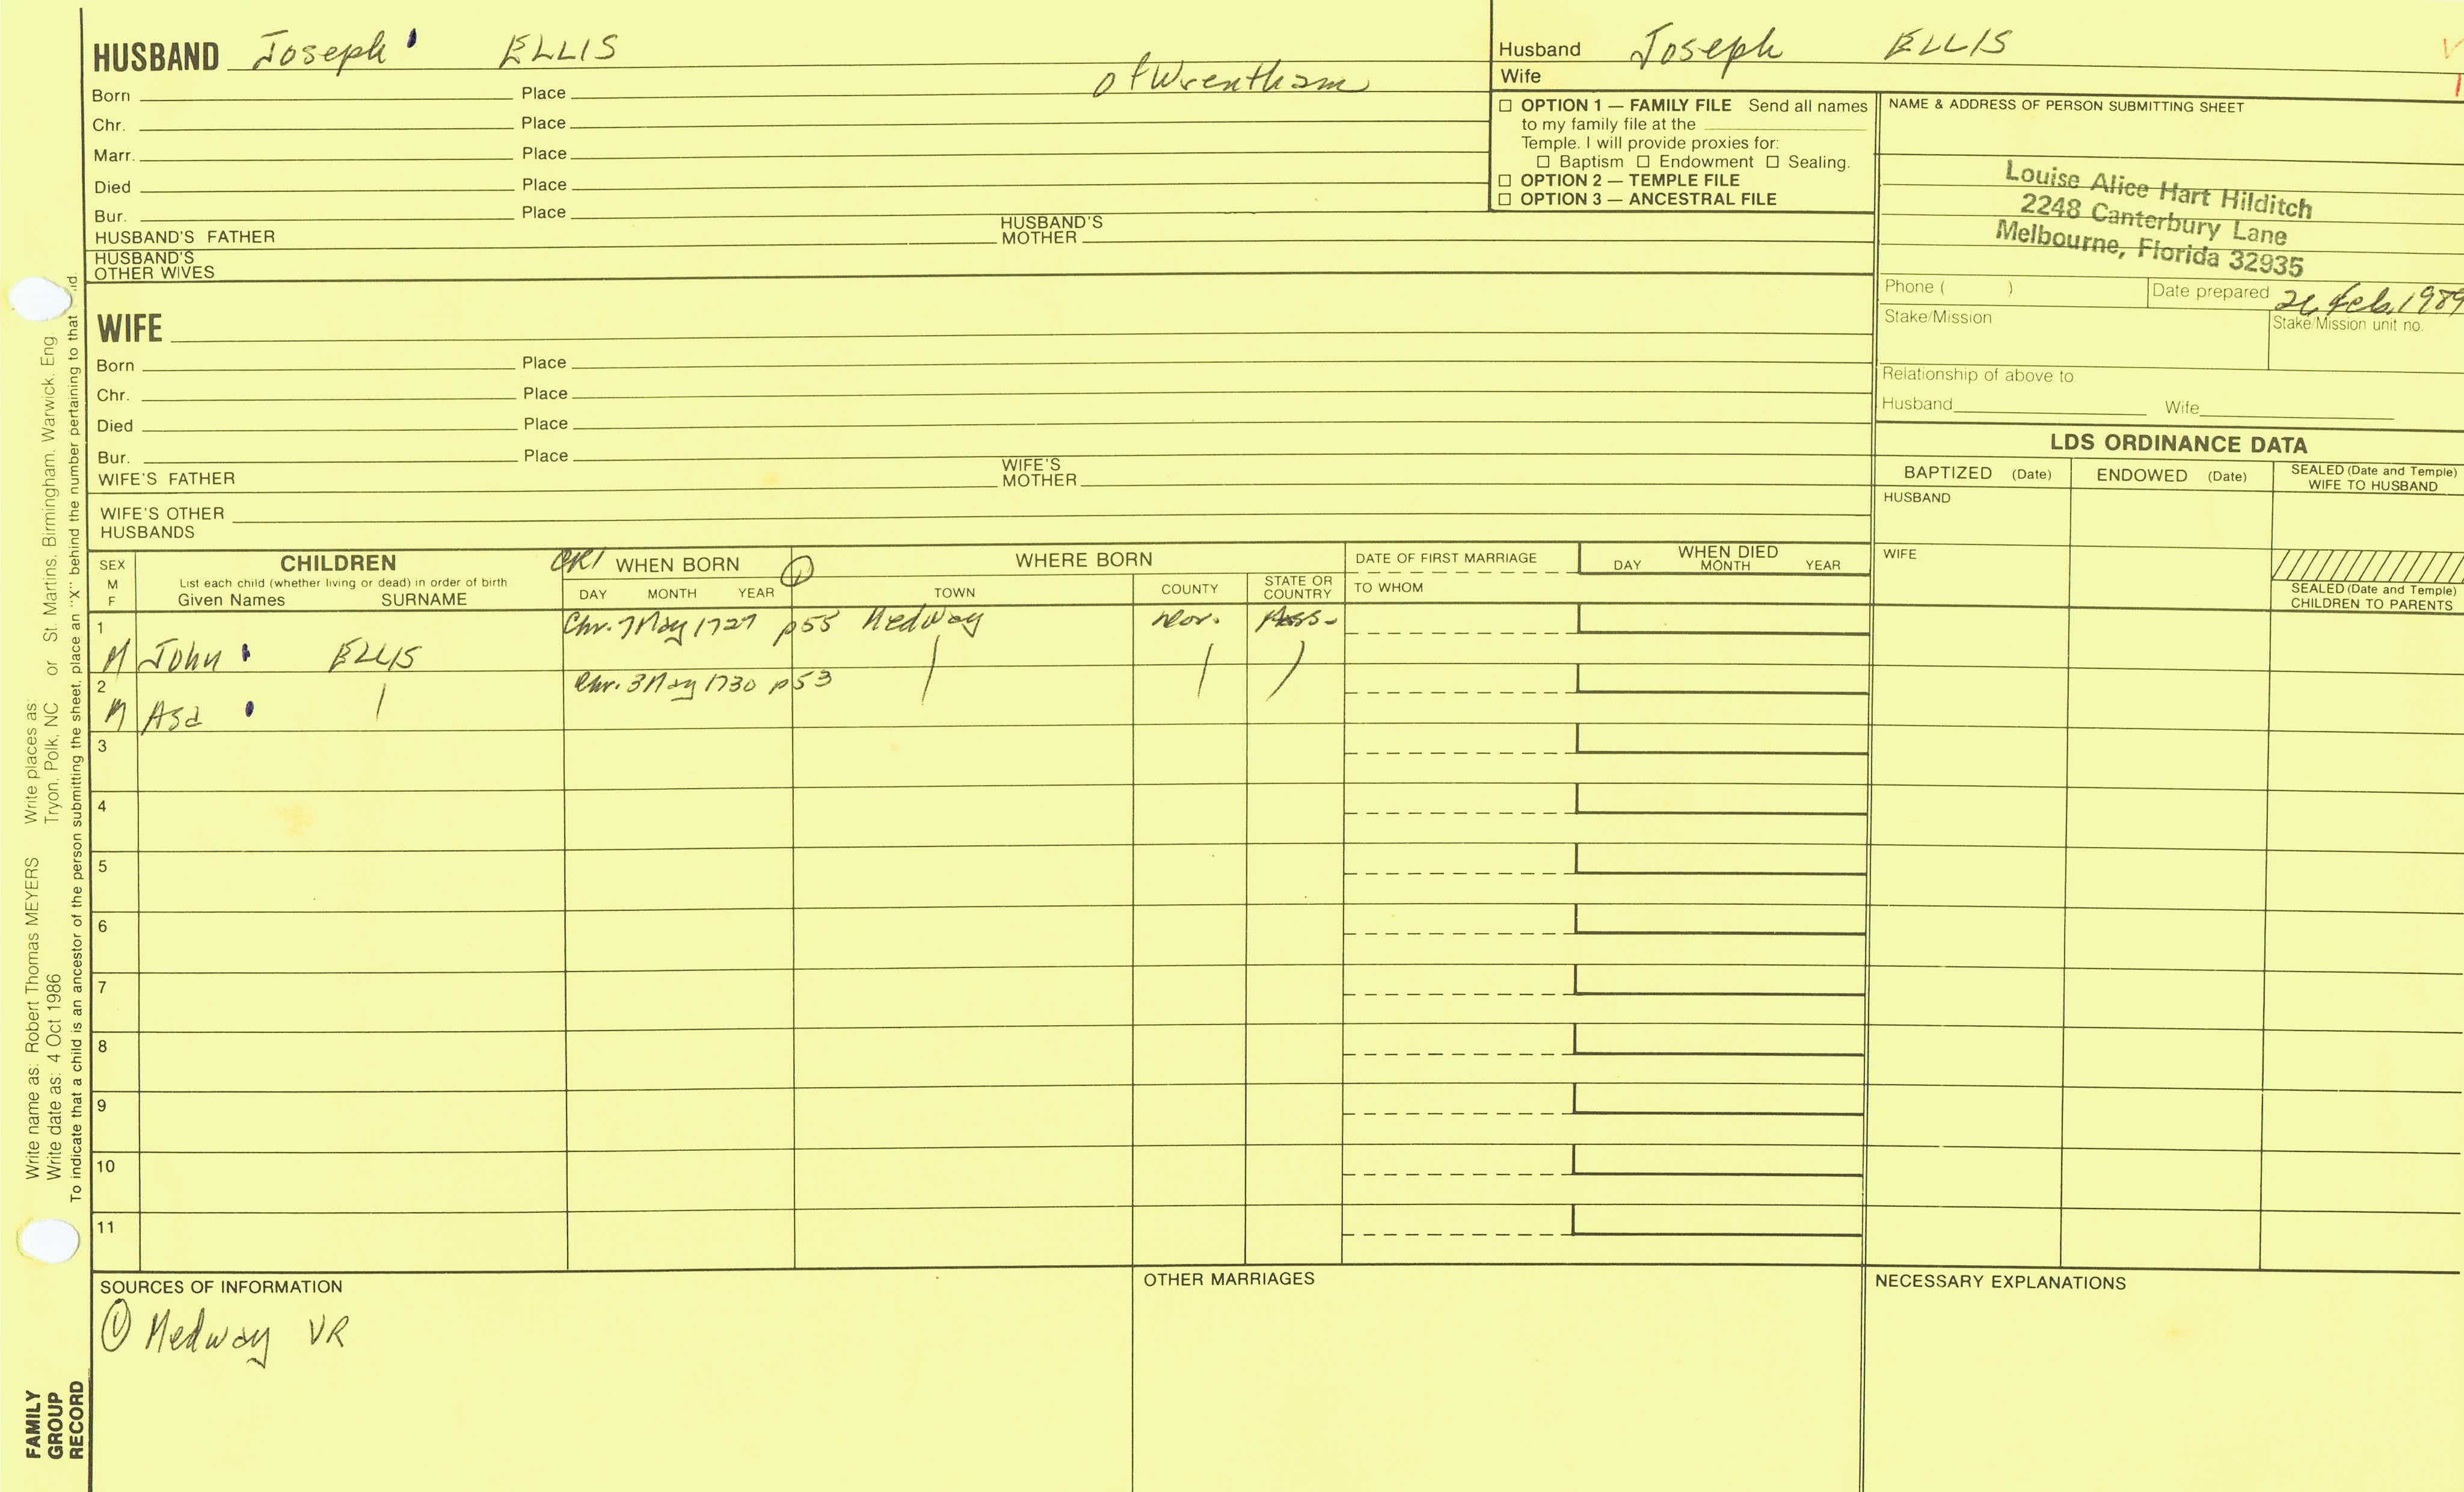 HUSBAND Joseph ELLIS
of Wrentham
Born Place
Chr. Place
Marr. Place
Died Place
Bur. Place
HUSBAND'S FATHER HUSBAND'S MOTHER
HUSBAND'S OTHER WIVES
Husband Joseph ELLIS
Wife
☐ OPTION 1 — FAMILY FILE Send all names
to my family file at the
Temple. I will provide proxies for:
☐ Baptism ☐ Endowment ☐ Sealing.
☐ OPTION 2 — TEMPLE FILE
☐ OPTION 3 — ANCESTRAL FILE
NAME & ADDRESS OF PERSON SUBMITTING SHEET
Louise Alice Hart Hilditch
2248 Canterbury Lane
Melbourne, Florida 32935
Phone ( ) Date prepared 26 Feb. 1989
Stake/Mission Stake/Mission unit no.
Relationship of above to
Husband Wife
WIFE
Born Place
Chr. Place
Died Place
Bur. Place
WIFE'S FATHER WIFE'S MOTHER
WIFE'S OTHER HUSBANDS
LDS ORDINANCE DATA
BAPTIZED (Date) ENDOWED (Date) SEALED (Date and Temple) WIFE TO HUSBAND
HUSBAND
WIFE
SEALED (Date and Temple) CHILDREN TO PARENTS
SEX M F
CHILDREN
List each child (whether living or dead) in order of birth
Given Names SURNAME
CR1 WHEN BORN ①
DAY MONTH YEAR
WHERE BORN
TOWN COUNTY STATE OR COUNTRY
DATE OF FIRST MARRIAGE
TO WHOM
WHEN DIED
DAY MONTH YEAR
1 Chr. 7 May 1727 p55 Medway Nor. Mass-
M John ELLIS
2 Chr. 3 May 1730 p53
M Asa
3
4
5
6
7
8
9
10
11
SOURCES OF INFORMATION
① Medway VR
OTHER MARRIAGES
NECESSARY EXPLANATIONS
Write name as: Robert Thomas MEYERS Write places as:
Write date as: 4 Oct 1986 Tryon, Polk, NC or St. Martins, Birmingham, Warwick, Eng
To indicate that a child is an ancestor of the person submitting the sheet, place an "X" behind the number pertaining to that
FAMILY
GROUP
RECORD